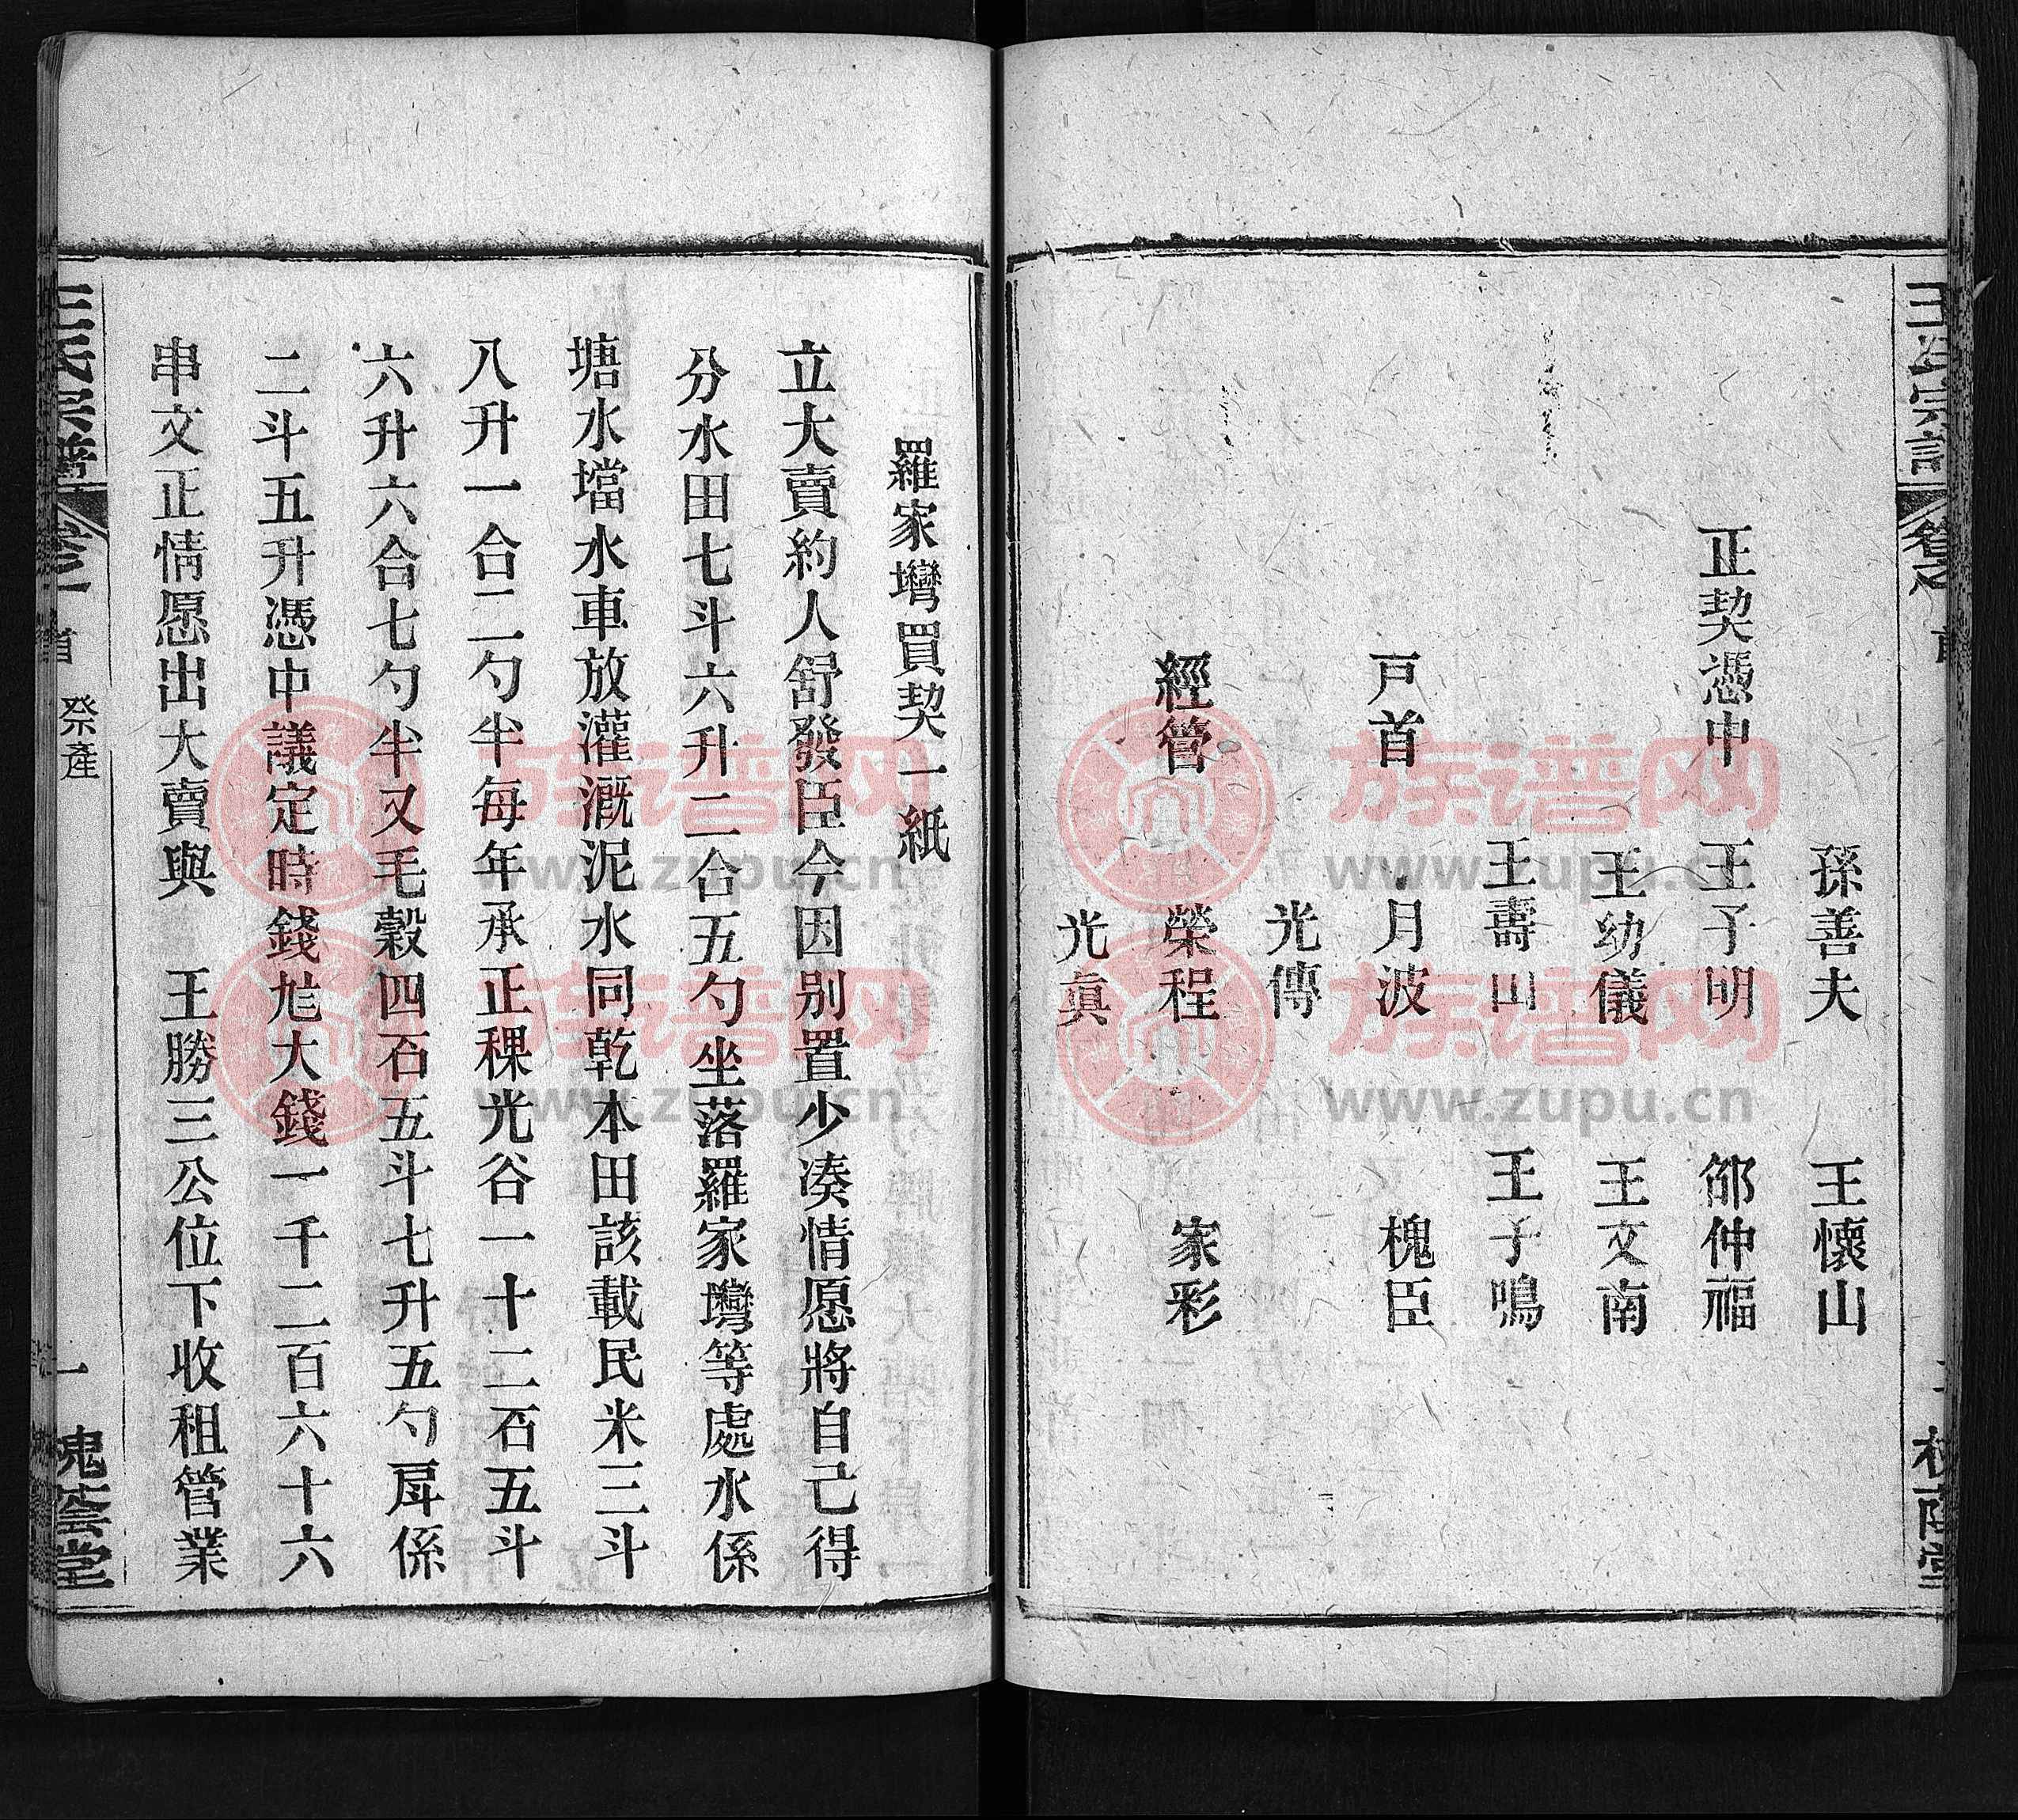 孫善夫 王懷山
正契憑中 王子明 邵仲福
王幼儀 王文南
王壽山 王子鳴
戸首 月波 槐臣
光傳
經管 榮程 家彩
光眞
羅家塆買契一紙
立大賣約人舒發臣今因別置少湊情愿將自己得
分水田七斗六升二合五勺坐落羅家塆等處水係
塘水壋水車放灌溉泥水同乾本田該載民米三斗
八升一合二勺半每年承正稞光谷一十二石五斗
六升六合七勺半又毛穀四石五斗七升五勺戽係
二斗五升憑中議定時錢尨大錢一千二百六十六
串文正情愿出大賣與 王勝三公位下收租管業
王氏宗譜 卷之一 首 祭產 一 槐蔭堂
族谱网
www.zupu.cn
族谱网
www.zupu.cn
族谱网
www.zupu.cn
族谱网
www.zupu.cn